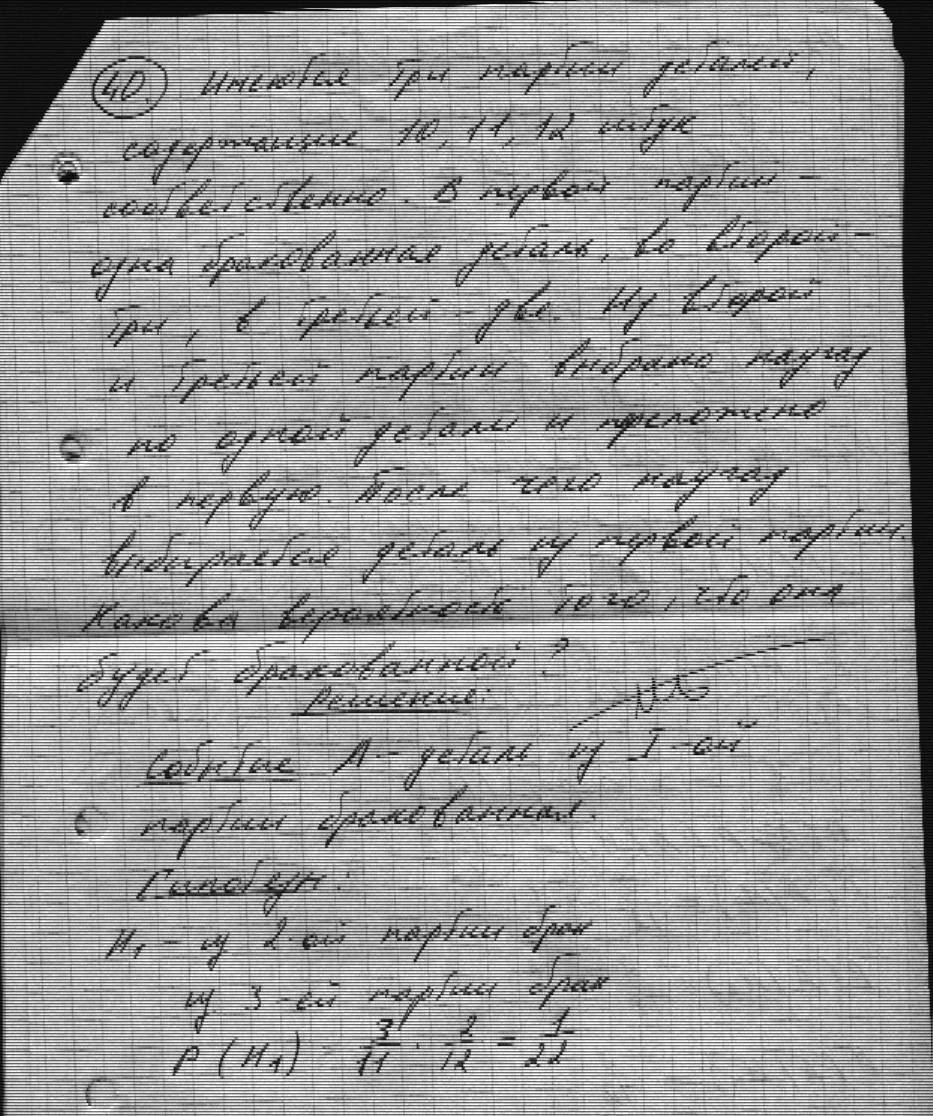 40. Имеются три партии деталей,
содержащие 10, 11, 12 штук
соответственно. В первой партии –
одна бракованная деталь, во второй –
три, в третьей – две. Из второй
и третьей партии выбрано наугад
по одной детали и преложено
в первую. После чего наугад
выбирается деталь из первой партии.
Какова вероятность того, что она
будет бракованной?
Решение:
Событие A – деталь из I-ой
партии бракованная.
Гипотезы:
H₁ – из 2-ой партии брак
из 3-ей партии брак
P(H₁) = 3/11 · 2/12 = 1/22